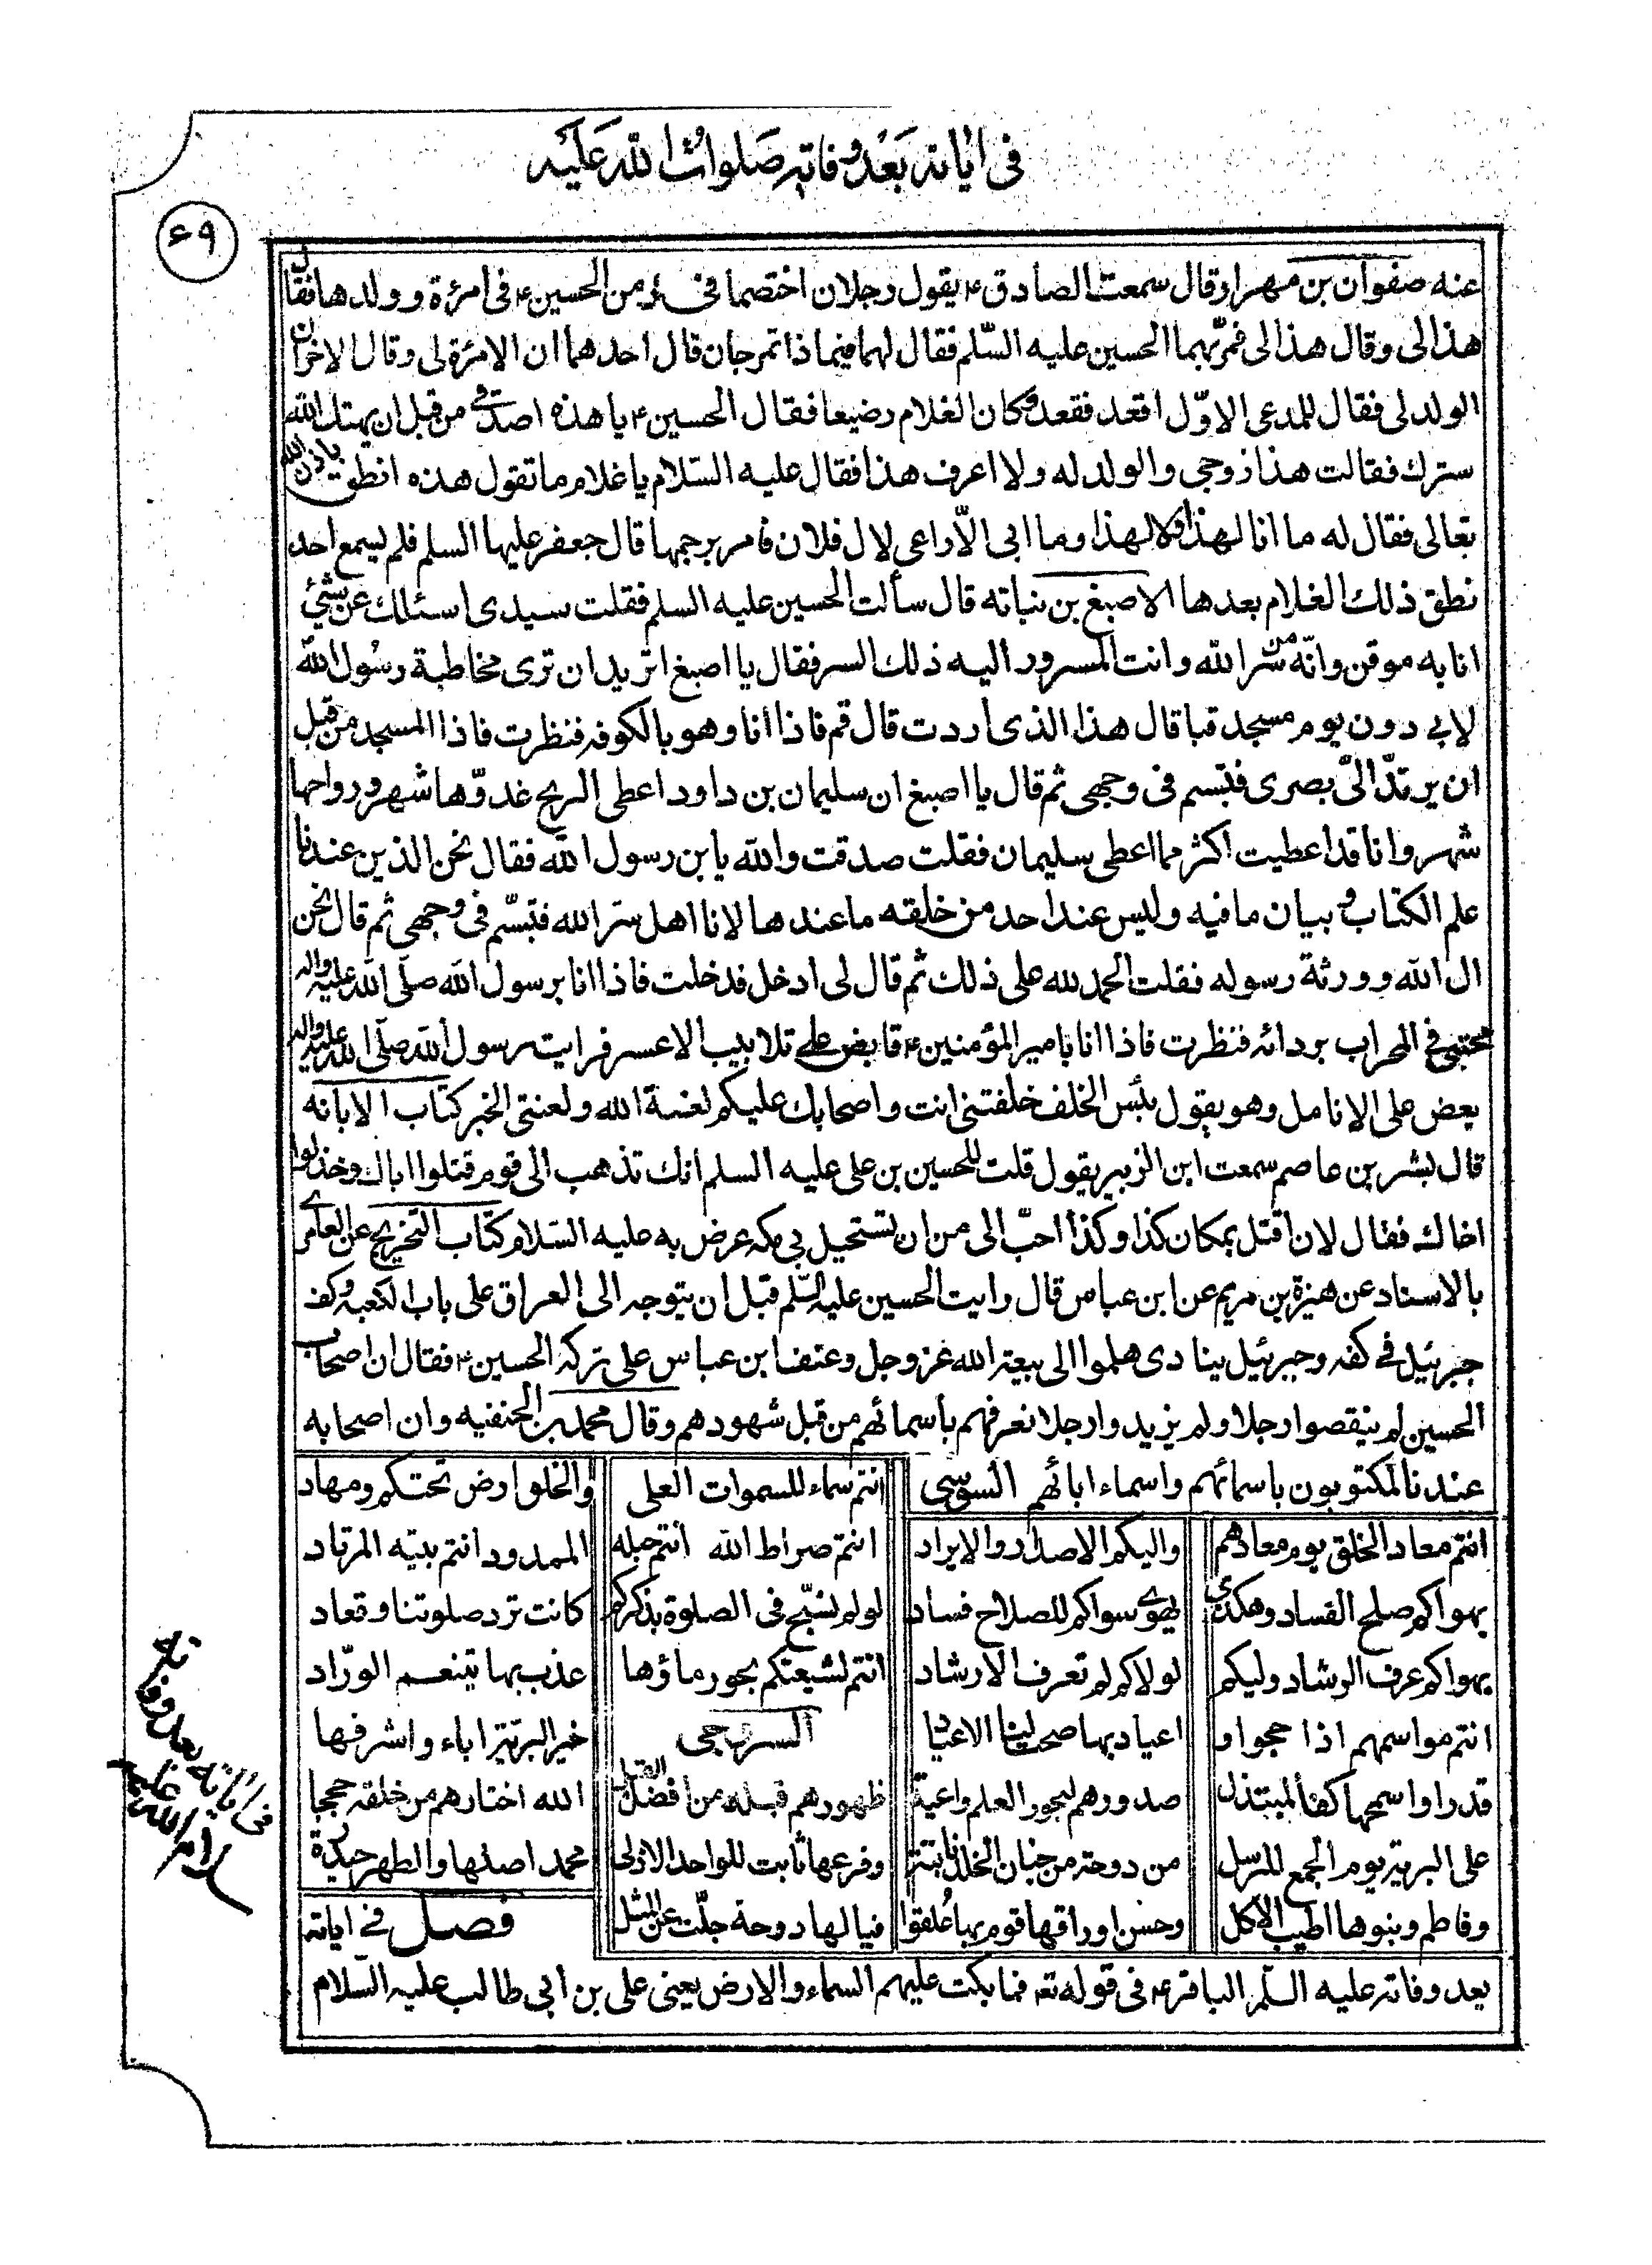 فى اياته بَعْد وفاته صَلوات الله عَليَه
٦٩
عنه صفوان بن مهران قال سمعت الصادق ع يقول رجلان اختصما فى زمن الحسين ع فى امرئة وولدها فقال
هذا لى وقال هذا لى فمرّ بهما الحسين عليه السّلم فقال لهما فيما ذا تمرجان قال احدهما ان الامرئة لى وقال الاخر ان
الولد لى فقال للمدعى الاوّل اقعد فقعد وكان الغلام رضيعا فقال الحسين ع يا هذه اصدقى من قبل ان يهتك الله
سترك فقالت هذا زوجى والولد له ولا اعرف هذا فقال عليه السّلام يا غلام ما تقول هذه انطق باذن الله
تعالى فقال له ما انا لهذا ولا لهذا وما ابى الّا راعى لال فلان فامر برجمها قال جعفر عليها السلم فلم يسمع احد
نطق ذلك الغلام بعدها الاصبغ بن نباته قال سألت الحسين عليه السلم فقلت سيدى اسئلك عن شئ
انا به موقن وانّه من سر الله وانت المسرور اليه ذلك السر فقال يا اصبغ اتريد ان ترى مخاطبة رسول الله
لابي دون يوم مسجد قبا قال هذا الذى اردت قال قم فاذا انا وهو بالكوفه فنظرت فاذا المسجد من قبل
ان يرتدّ الىّ بصرى فتبّسم فى وجهى ثم قال يا اصبغ ان سليمان بن داود اعطى الريح غدوّها شهر ورواحها
شهر وانا قد اعطيت اكثر مما اعطى سليمان فقلت صدقت والله يا بن رسول الله فقال نحن الذين عندنا
علم الكتاب وبيان ما فيه وليس عند احد من خلقه ما عندنا لانا اهل سرّ الله فتبسّم فى وجهى ثم قال نحن
ال الله وورثة رسوله فقلت الحمد لله على ذلك ثم قال لى ادخل فدخلت فاذا انا برسول الله صلّى الله عليه واله
محتبئ فى المحراب بردائه فنظرت فاذا انا بامير المؤمنين ع قابض على تلابيب الاعسر فرايت رسول الله صلّى الله عليه واله
يعض على الانامل وهو يقول بئس الخلف خلفتنى انت واصحابك عليكم لعنة الله ولعنتى الخبر كتاب الابانه
قال بشر بن عاصم سمعت ابن الزبير يقول قلت للحسين بن على عليه السلم انك تذهب الى قوم قتلوا اباك وخذلوا
اخاك فقال لان اقتل بمكان كذا وكذا احبّ الى من ان تستحيل بى مكه عرض به عليه السّلام كتاب التخريج عن العامرى
بالاسناد عن هبيرة بن مريم عن ابن عباس قال رايت الحسين عليه السّلم قبل ان يتوجه الى العراق على باب الكعبه وكف
جبرئيل فى كفه وجبرئيل ينادى هلموا الى بيعة الله عز وجل وعنف ابن عباس على تركه الحسين ع فقال ان اصحاب
الحسين لم ينقصوا رجلا ولم يزيدوا رجلا نعرفهم بأسمائهم من قبل شهودهم وقال محمد بن الحنفيه وان اصحابه
عندنا لمكتوبون باسمائهم واسماء ابائهم السّوسى
انتم سماء للسموات العلى والخلق ارض تحتكم ومهاد
انتم معاد الخلق يوم معادهم واليكم الاصدار والايراد
انتم صراط الله انتم حبله الممدود انتم بيته المرتاد
بهواكم صلح الفساد وهكذى بهوى سواكم للصلاح فساد
لو لم نسبّح فى الصلوة بذكركم كانت ترد صلوتنا وتعاد
بهواكم عرف الرشاد وليكم لولاكم لم تعرف الارشاد
انتم لشيعتكم بحور ماؤها عذب بها يتنعم الورّاد
انتم مواسمهم اذا حجوا و اعياد بها صحت لنا الاعياد
السروجى
خير البريّة اباء واشرفها
قدرا واسمحها كفا لمبتذل صدورهم لبحور العلم واعية
ظهورهم قبلة من افضل القبل الله اختارهم من خلقه حججا
على البريّة يوم الجمع للرسل من دوحة من جنان الخلد نابتة
وفرعها ثابت للواحد الازلى محمد اصلها والطهر حيدرة
وفاطم وبنوها اطيب الاكل وحسن اوراقها قوم بها عُلقوا
فيا لها دوحة جلّت عن المثل فصل فى اياته
بعد وفاته عليه السّلم الباقر ع فى قوله تع فما بكت عليهم السماء والارض يعنى على بن أبى طالب عليه السّلام
فى اياته بعد وفاته
سلام الله عليه